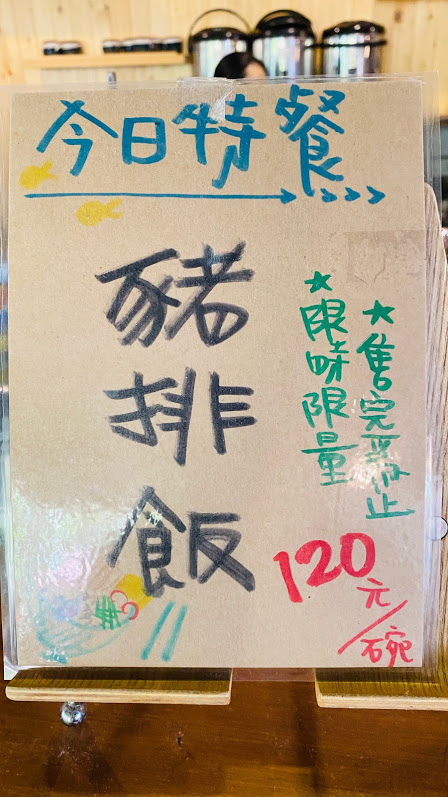 今日特餐
豬排飯
★售完為止
★限時限量
120元/碗